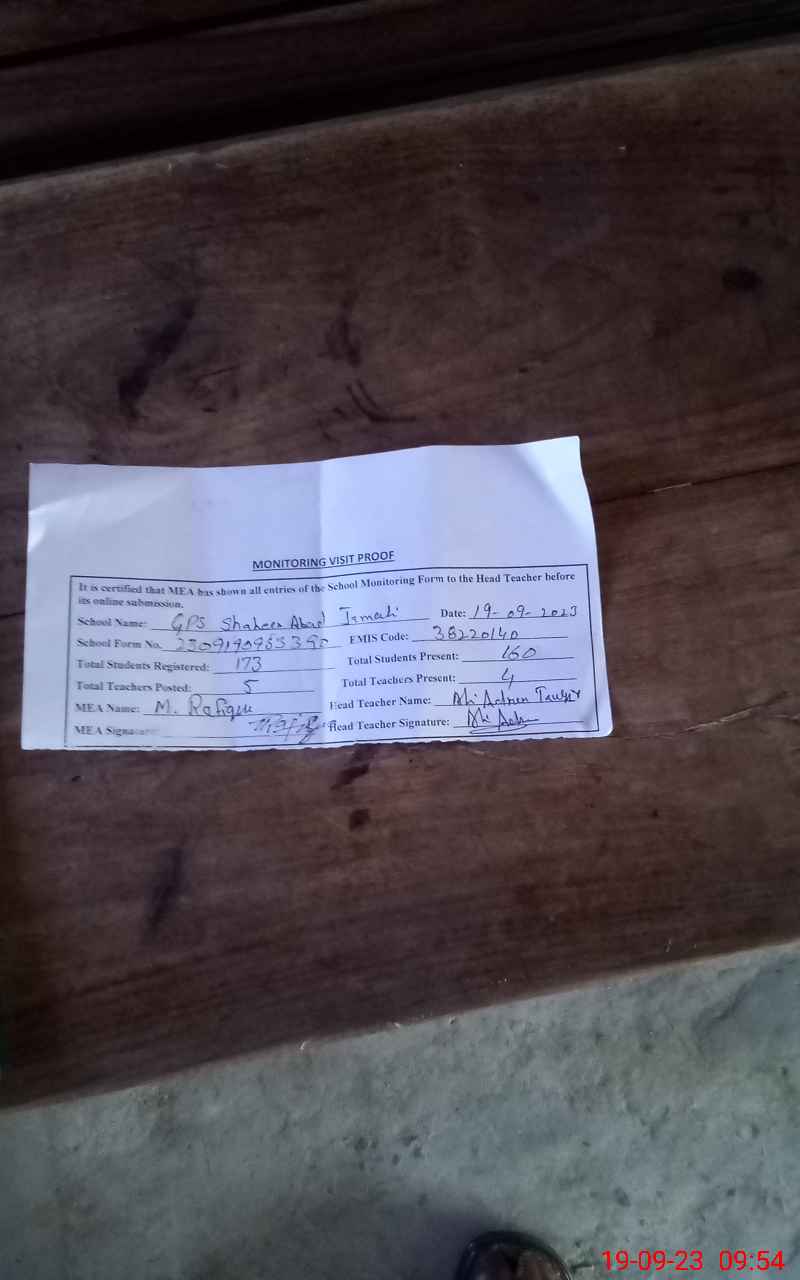 MONITORING VISIT PROOF
It is certified that MEA has shown all entries of the School Monitoring Form to the Head Teacher before
its online submission.
School Name: GPS Shaheen Abad Date: 19-09-2023
School Form No. EMIS Code: 38220140
Total Students Registered: 173 Total Students Present: 160
Total Teachers Posted: 5 Total Teachers Present: 4
MEA Name: M. Rafique Head Teacher Name:
MEA Signature: Head Teacher Signature:
19-09-23 09:54